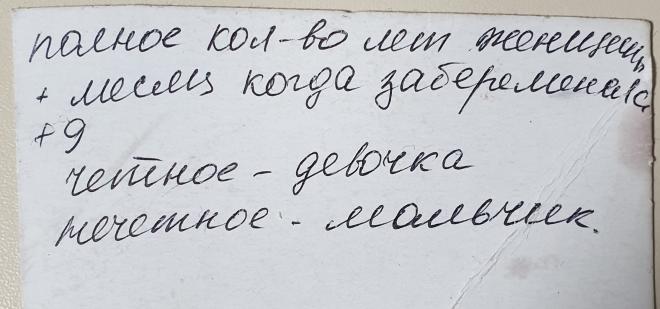 полное кол-во лет женщины
+ месяц когда забеременала
+9
четное - девочка
нечетное - мальчик.